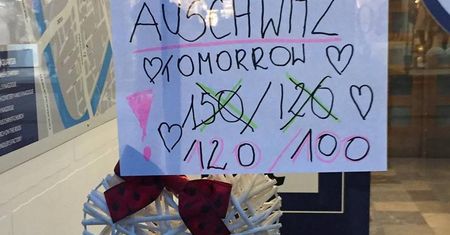 AUSCHWITZ
♡TOMORROW♡
! ♡ 150/120 ♡
120/100